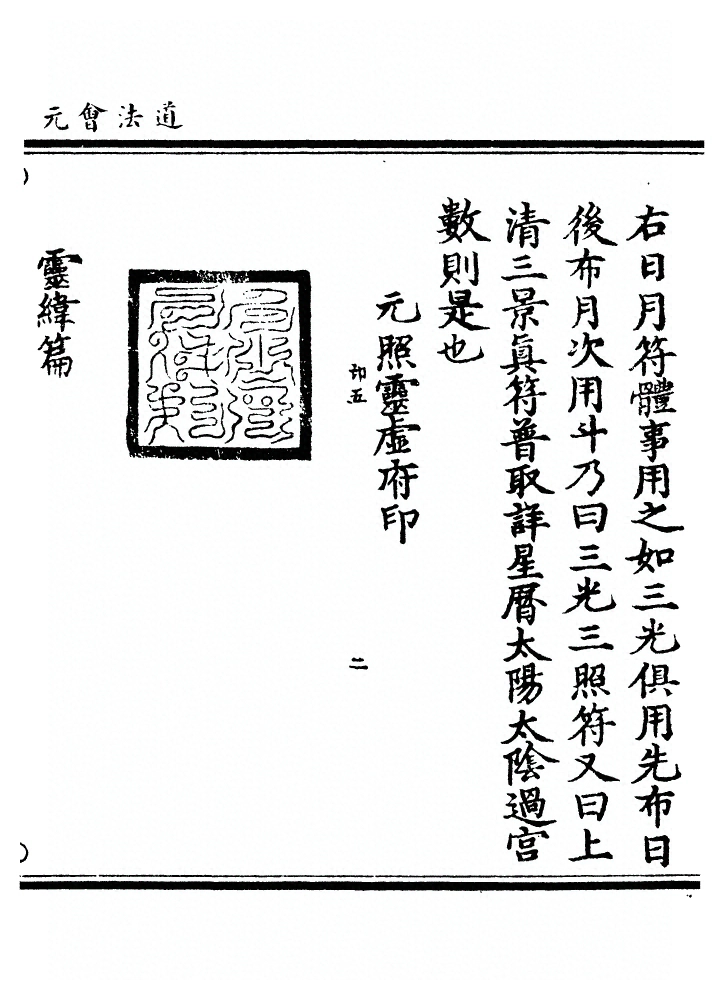 道法會元
右日月符體事用之如三光俱用先布日
後布月次用斗乃曰三光三照符又曰上
清三景眞符普取詳星曆太陽太陰過宫
數則是也
元照靈虛府印
印五
二
靈緯篇